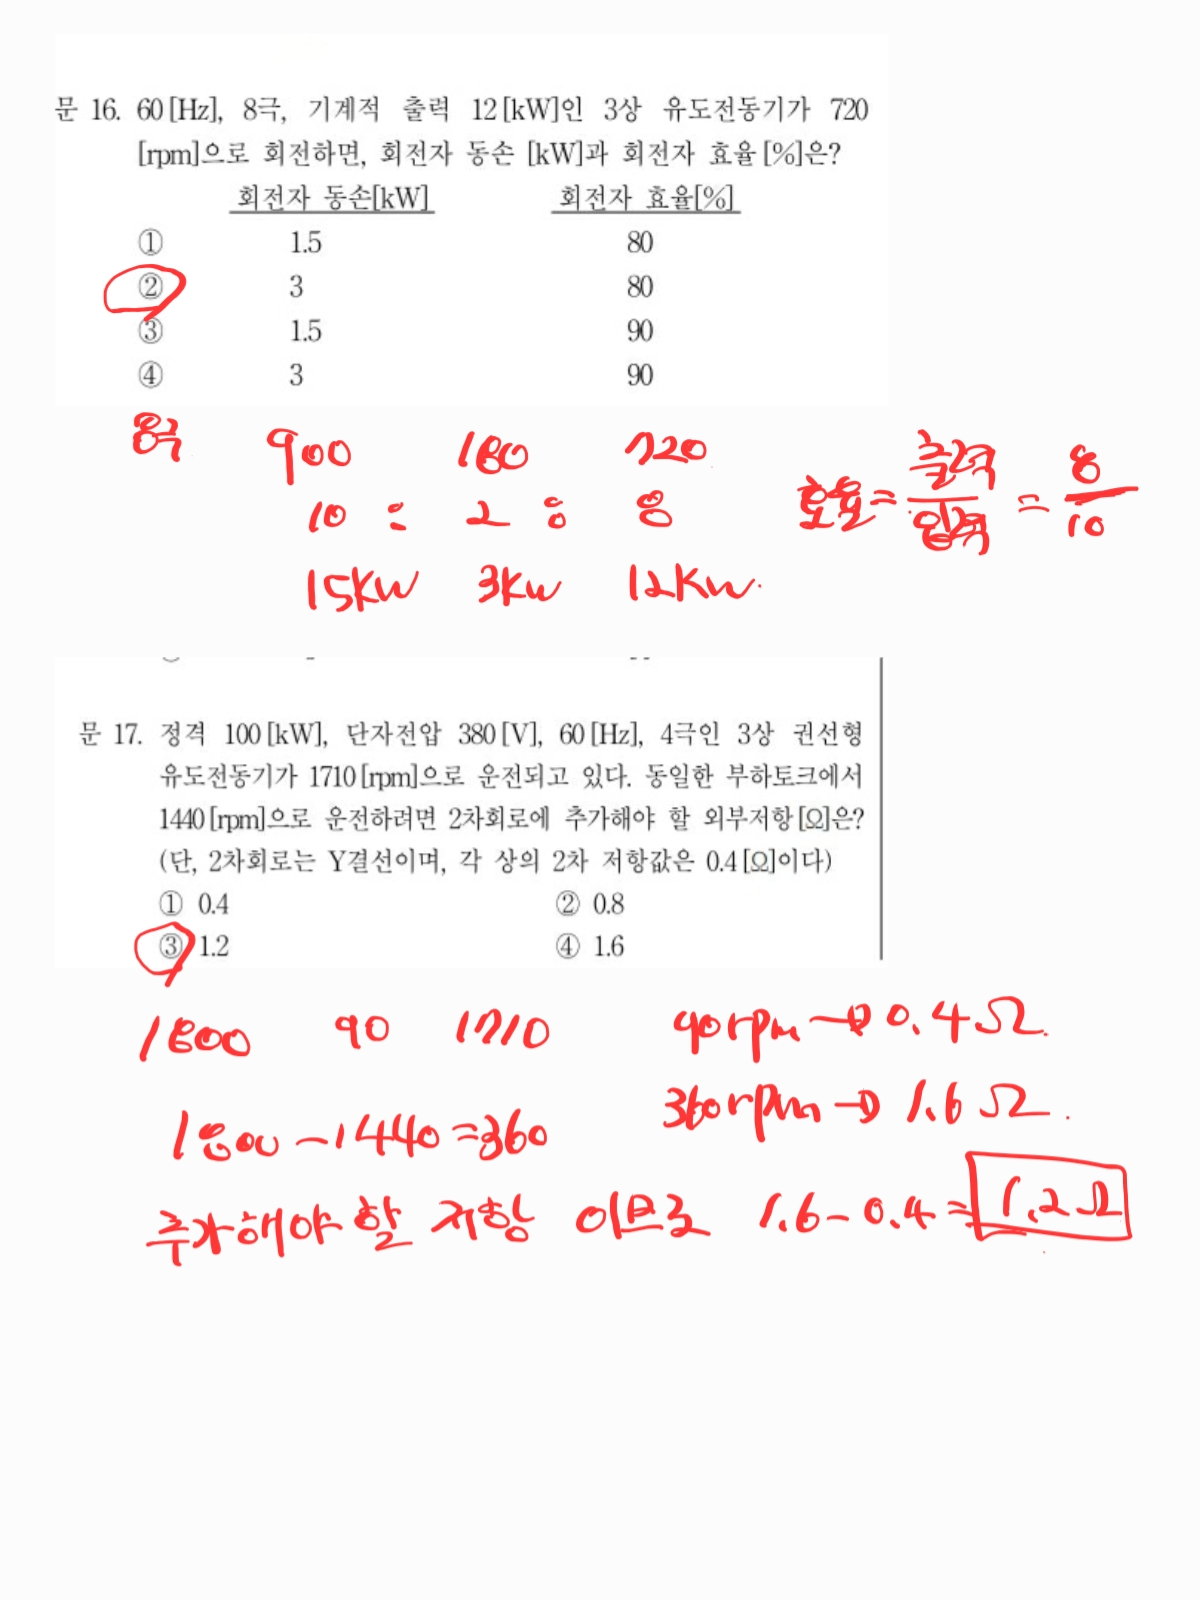 문 16. 60[Hz], 8극, 기계적 출력 12[kW]인 3상 유도전동기가 720
[rpm]으로 회전하면, 회전자 동손 [kW]과 회전자 효율[%]은?
회전자 동손[kW] 회전자 효율[%]
① 1.5 80
② 3 80
③ 1.5 90
④ 3 90
8극 900 180 720
10 : 2 : 8
15kW 3kW 12kW.
효율 = 출력/입력 = 8/10
문 17. 정격 100[kW], 단자전압 380[V], 60[Hz], 4극인 3상 권선형
유도전동기가 1710[rpm]으로 운전되고 있다. 동일한 부하토크에서
1440[rpm]으로 운전하려면 2차회로에 추가해야 할 외부저항[Ω]은?
(단, 2차회로는 Y결선이며, 각 상의 2차 저항값은 0.4[Ω]이다)
① 0.4 ② 0.8
③ 1.2 ④ 1.6
1800 90 1710 90rpm → 0.4Ω.
1800-1440=360 360rpm → 1.6Ω.
추가해야 할 저항 이므로 1.6-0.4= 1.2Ω